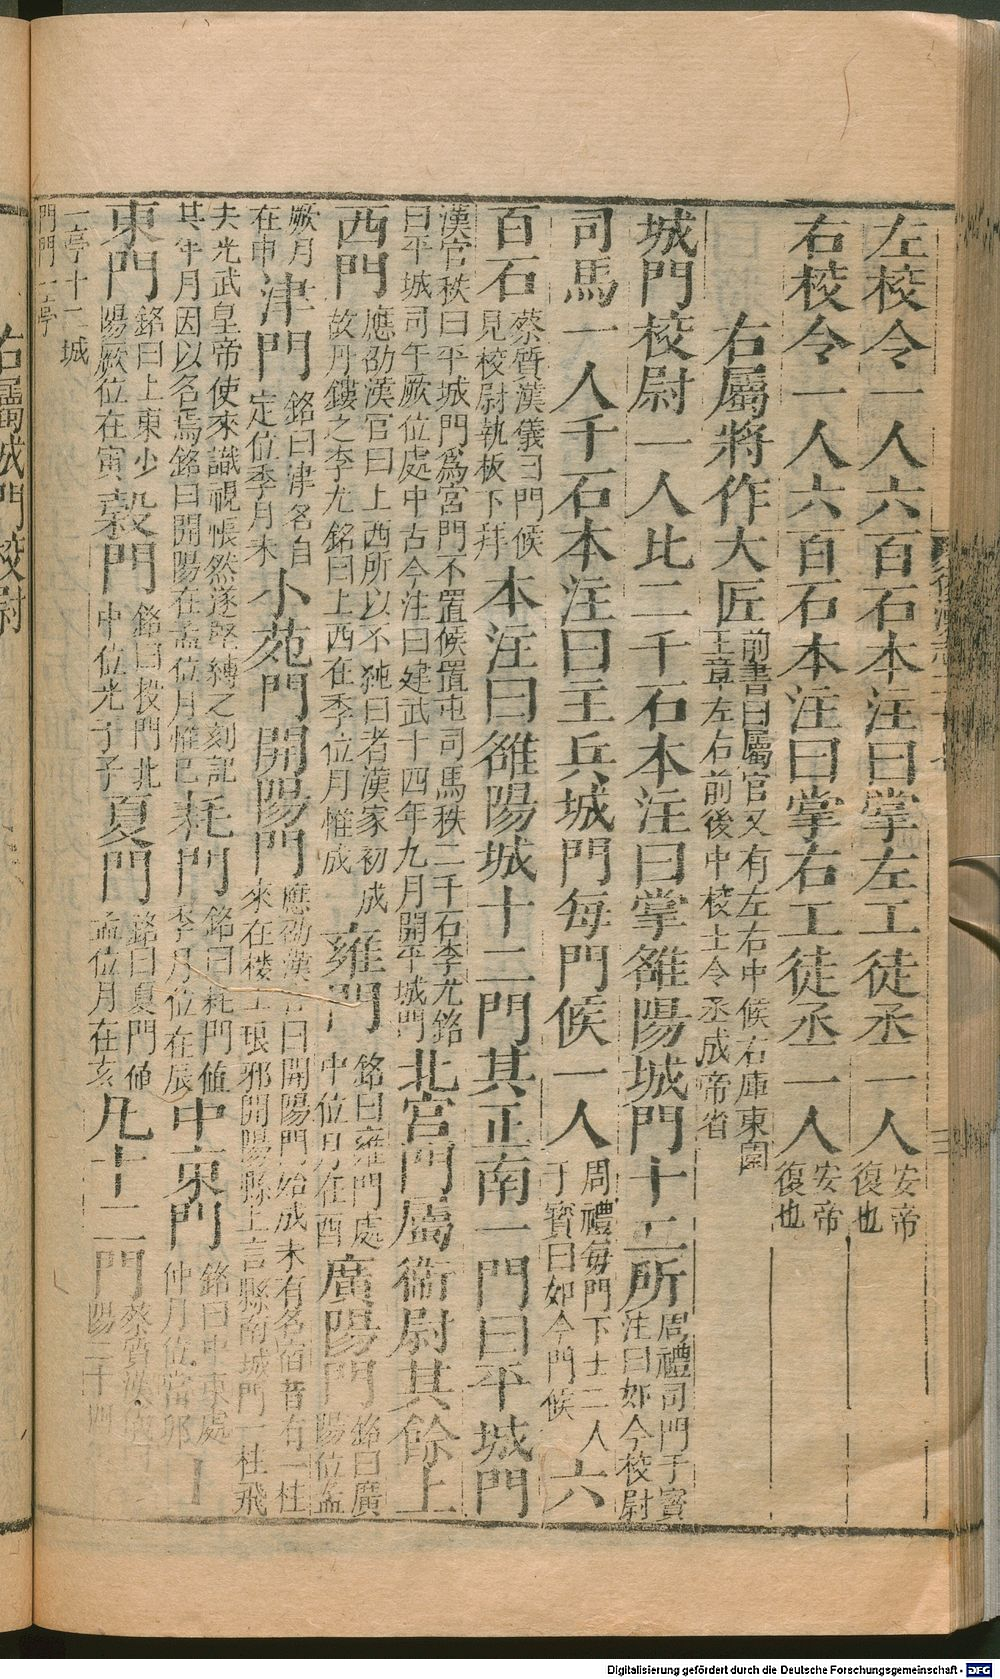 左校令一人六百石本注曰掌左工徒丞一人安帝復也
右校令一人六百石本注曰掌右工徒丞一人安帝復也
右屬將作大匠前書曰屬官又有左右中候右庫東園主章左右前後中校士令丞成帝省
城門校尉一人比二千石本注曰掌雒陽城門十二所周禮司門干寶注曰如今校尉
司馬一人千石本注曰主兵城門每門候一人周禮每門下士二人干寶曰如今門候六
百石蔡質漢儀曰門候見校尉執板下拜本注曰雒陽城十二門其正南一門曰平城門
漢官秩曰平城門為宮門不置候置屯司馬秩二千石李尤銘曰平城司午厥位處中古今注曰建武十四年九月開平城門北宮門屬衞尉其餘上
西門應劭漢官曰上西所以不純白者漢家初成故丹鏤之李尤銘曰上西在季位月惟戌雍門銘曰雍門處中位月在酉廣陽門銘曰廣陽位孟
厥月在申津門銘曰津名自定位季月未小苑門開陽門應劭漢官曰開陽門始成未有名宿昔有一柱來在樓上琅邪開陽縣上言縣南城門一柱飛
去光武皇帝使來識視悵然遂堅縛之刻記其年月因以名焉銘曰開陽在孟位月惟巳耗門銘曰耗門値季月位在辰中東門銘曰中東處仲月位當卯上
東門銘曰上東少陽厥位在寅穀門銘曰穀門北中位光子子夏門銘曰夏門値孟位月在亥凡十二門蔡質漢儀
一亭十二城門門一亭
右屬城門校尉
Digitalisierung gefördert durch die Deutsche Forschungsgemeinschaft - DFG